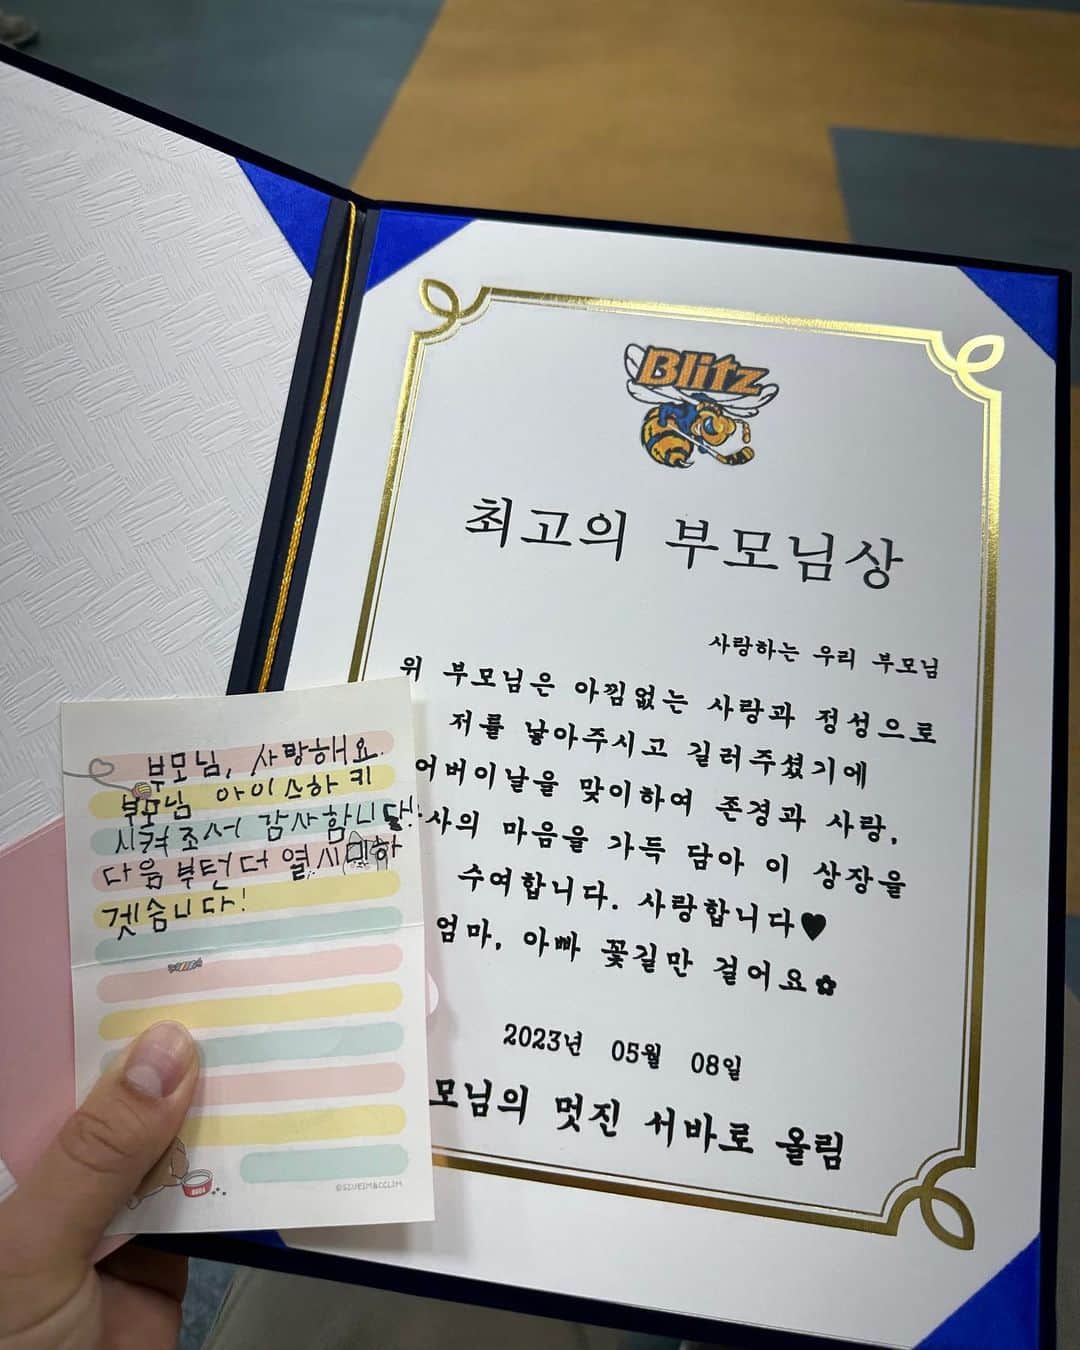 Blitz
최고의 부모님상
사랑하는 우리 부모님
위 부모님은 아낌없는 사랑과 정성으로
저를 낳아주시고 길러주셨기에
어버이날을 맞이하여 존경과 사랑,
사의 마음을 가득 담아 이 상장을
수여합니다. 사랑합니다♥
엄마, 아빠 꽃길만 걸어요✿
2023년 05월 08일
모님의 멋진 서바로 올림
부모님, 사랑해요.
부모님 아이스하키
시켜조서 감사함니다!
다음부턴더 열시미하
겟슴니다!